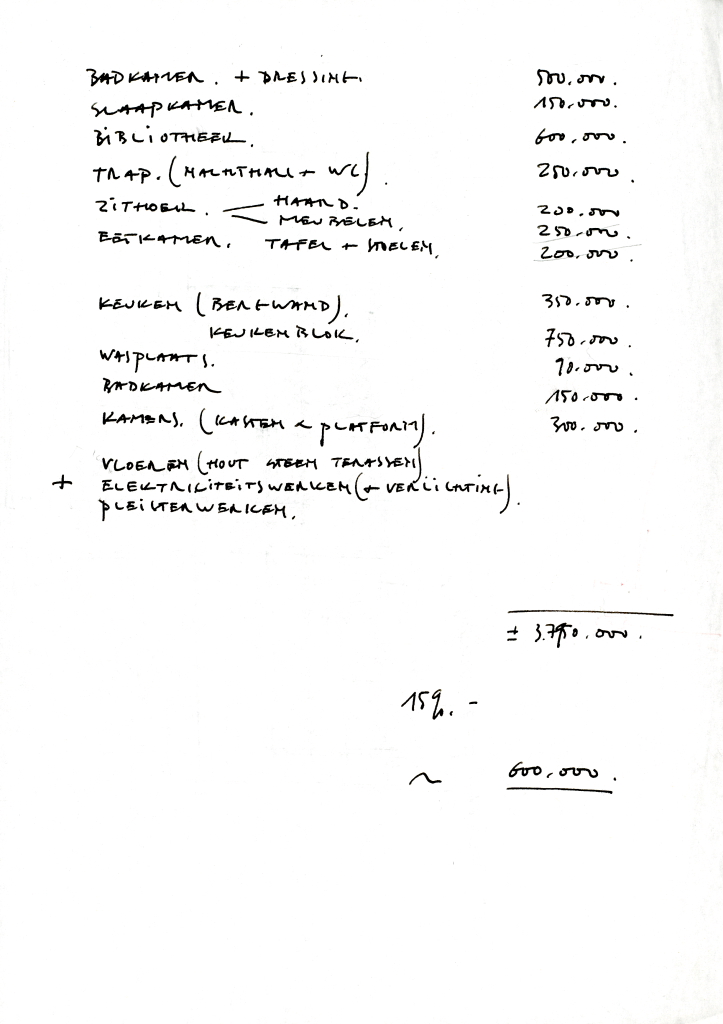 BADKAMER. + DRESSING. 500.000.
SLAAPKAMER. 150.000.
BIBLIOTHEEK. 600.000.
TRAP. (NACHTHALL + WC). 250.000.
ZITHOEK. HAARD. 200.000
MEUBELEN. 250.000.
EETKAMER. TAFEL + STOELEN. 200.000.
KEUKEN (BERGWAND). 350.000.
KEUKENBLOK. 750.000.
WASPLAATS. 90.000.
BADKAMER 150.000.
KAMERS. (KASTEN & PLATFORM). 300.000.
VLOEREN (HOUT STEEN TERASSEN)
+ ELEKTRICITEITSWERKEN (+ VERLICHTING).
PLEISTERWERKEN.
± 3.750.000.
15%. -
~ 600.000.